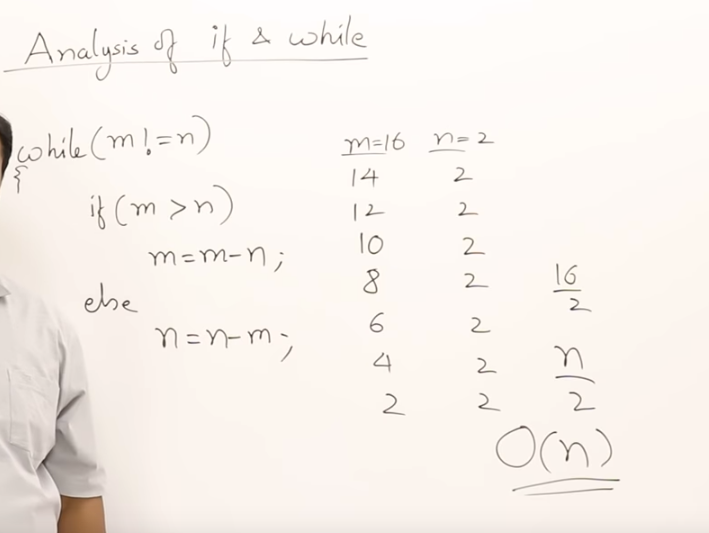 Analysis of if & while
while(m!=n)
{
if(m>n)
m=m-n;
else
n=n-m;
m=16 n=2
14 2
12 2
10 2
8 2
6 2
4 2
2 2
16
2
n
2
O(n)